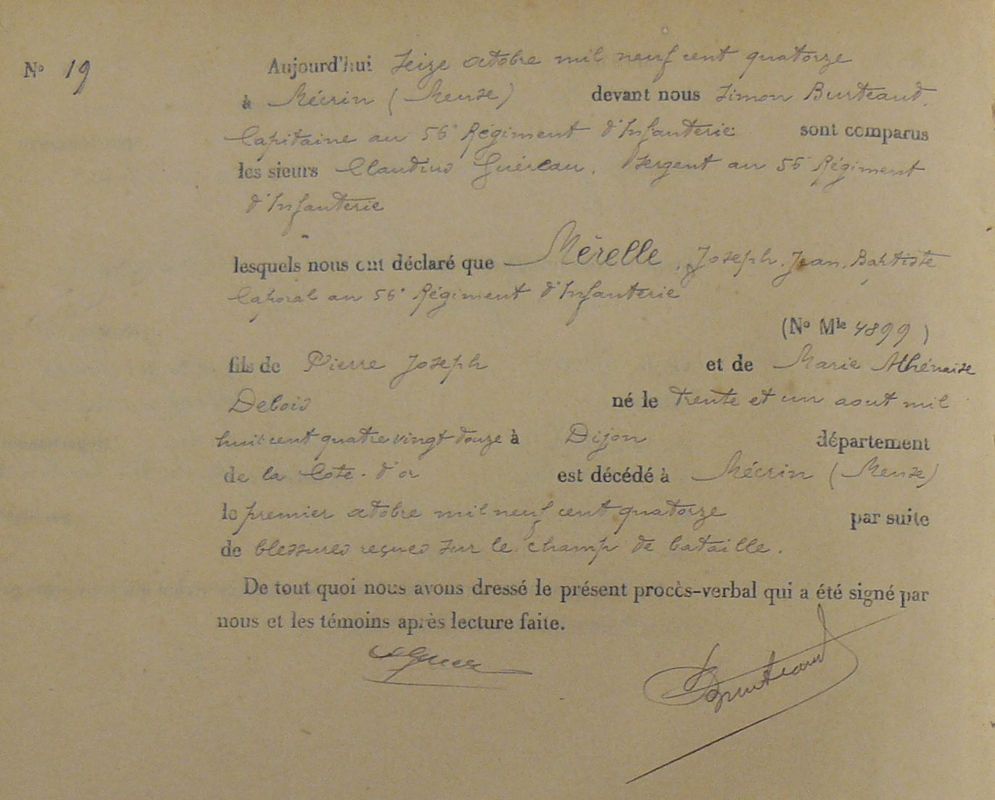 N° 19
Aujourd'hui seize octobre mil neuf cent quatorze
à Mécrin (Meuse) devant nous Simon Burteaud,
Capitaine au 56e Régiment d'Infanterie sont comparus
les sieurs Claudius Sergent au 56e Régiment
d'Infanterie
lesquels nous ont déclaré que Mérelle, Joseph, Jean, Baptiste
Caporal au 56e Régiment d'Infanterie
(N° Mle 4899)
fils de Pierre Joseph et de Marie Athénaise
Debois né le trente et un aout mil
huit cent quatre vingt douze à Dijon département
de la Cote-d'or est décédé à Mécrin (Meuse)
le premier octobre mil neuf cent quatorze par suite
de blessures reçues sur le champ de bataille.
De tout quoi nous avons dressé le présent procès-verbal qui a été signé par
nous et les témoins après lecture faite.
Burteaud